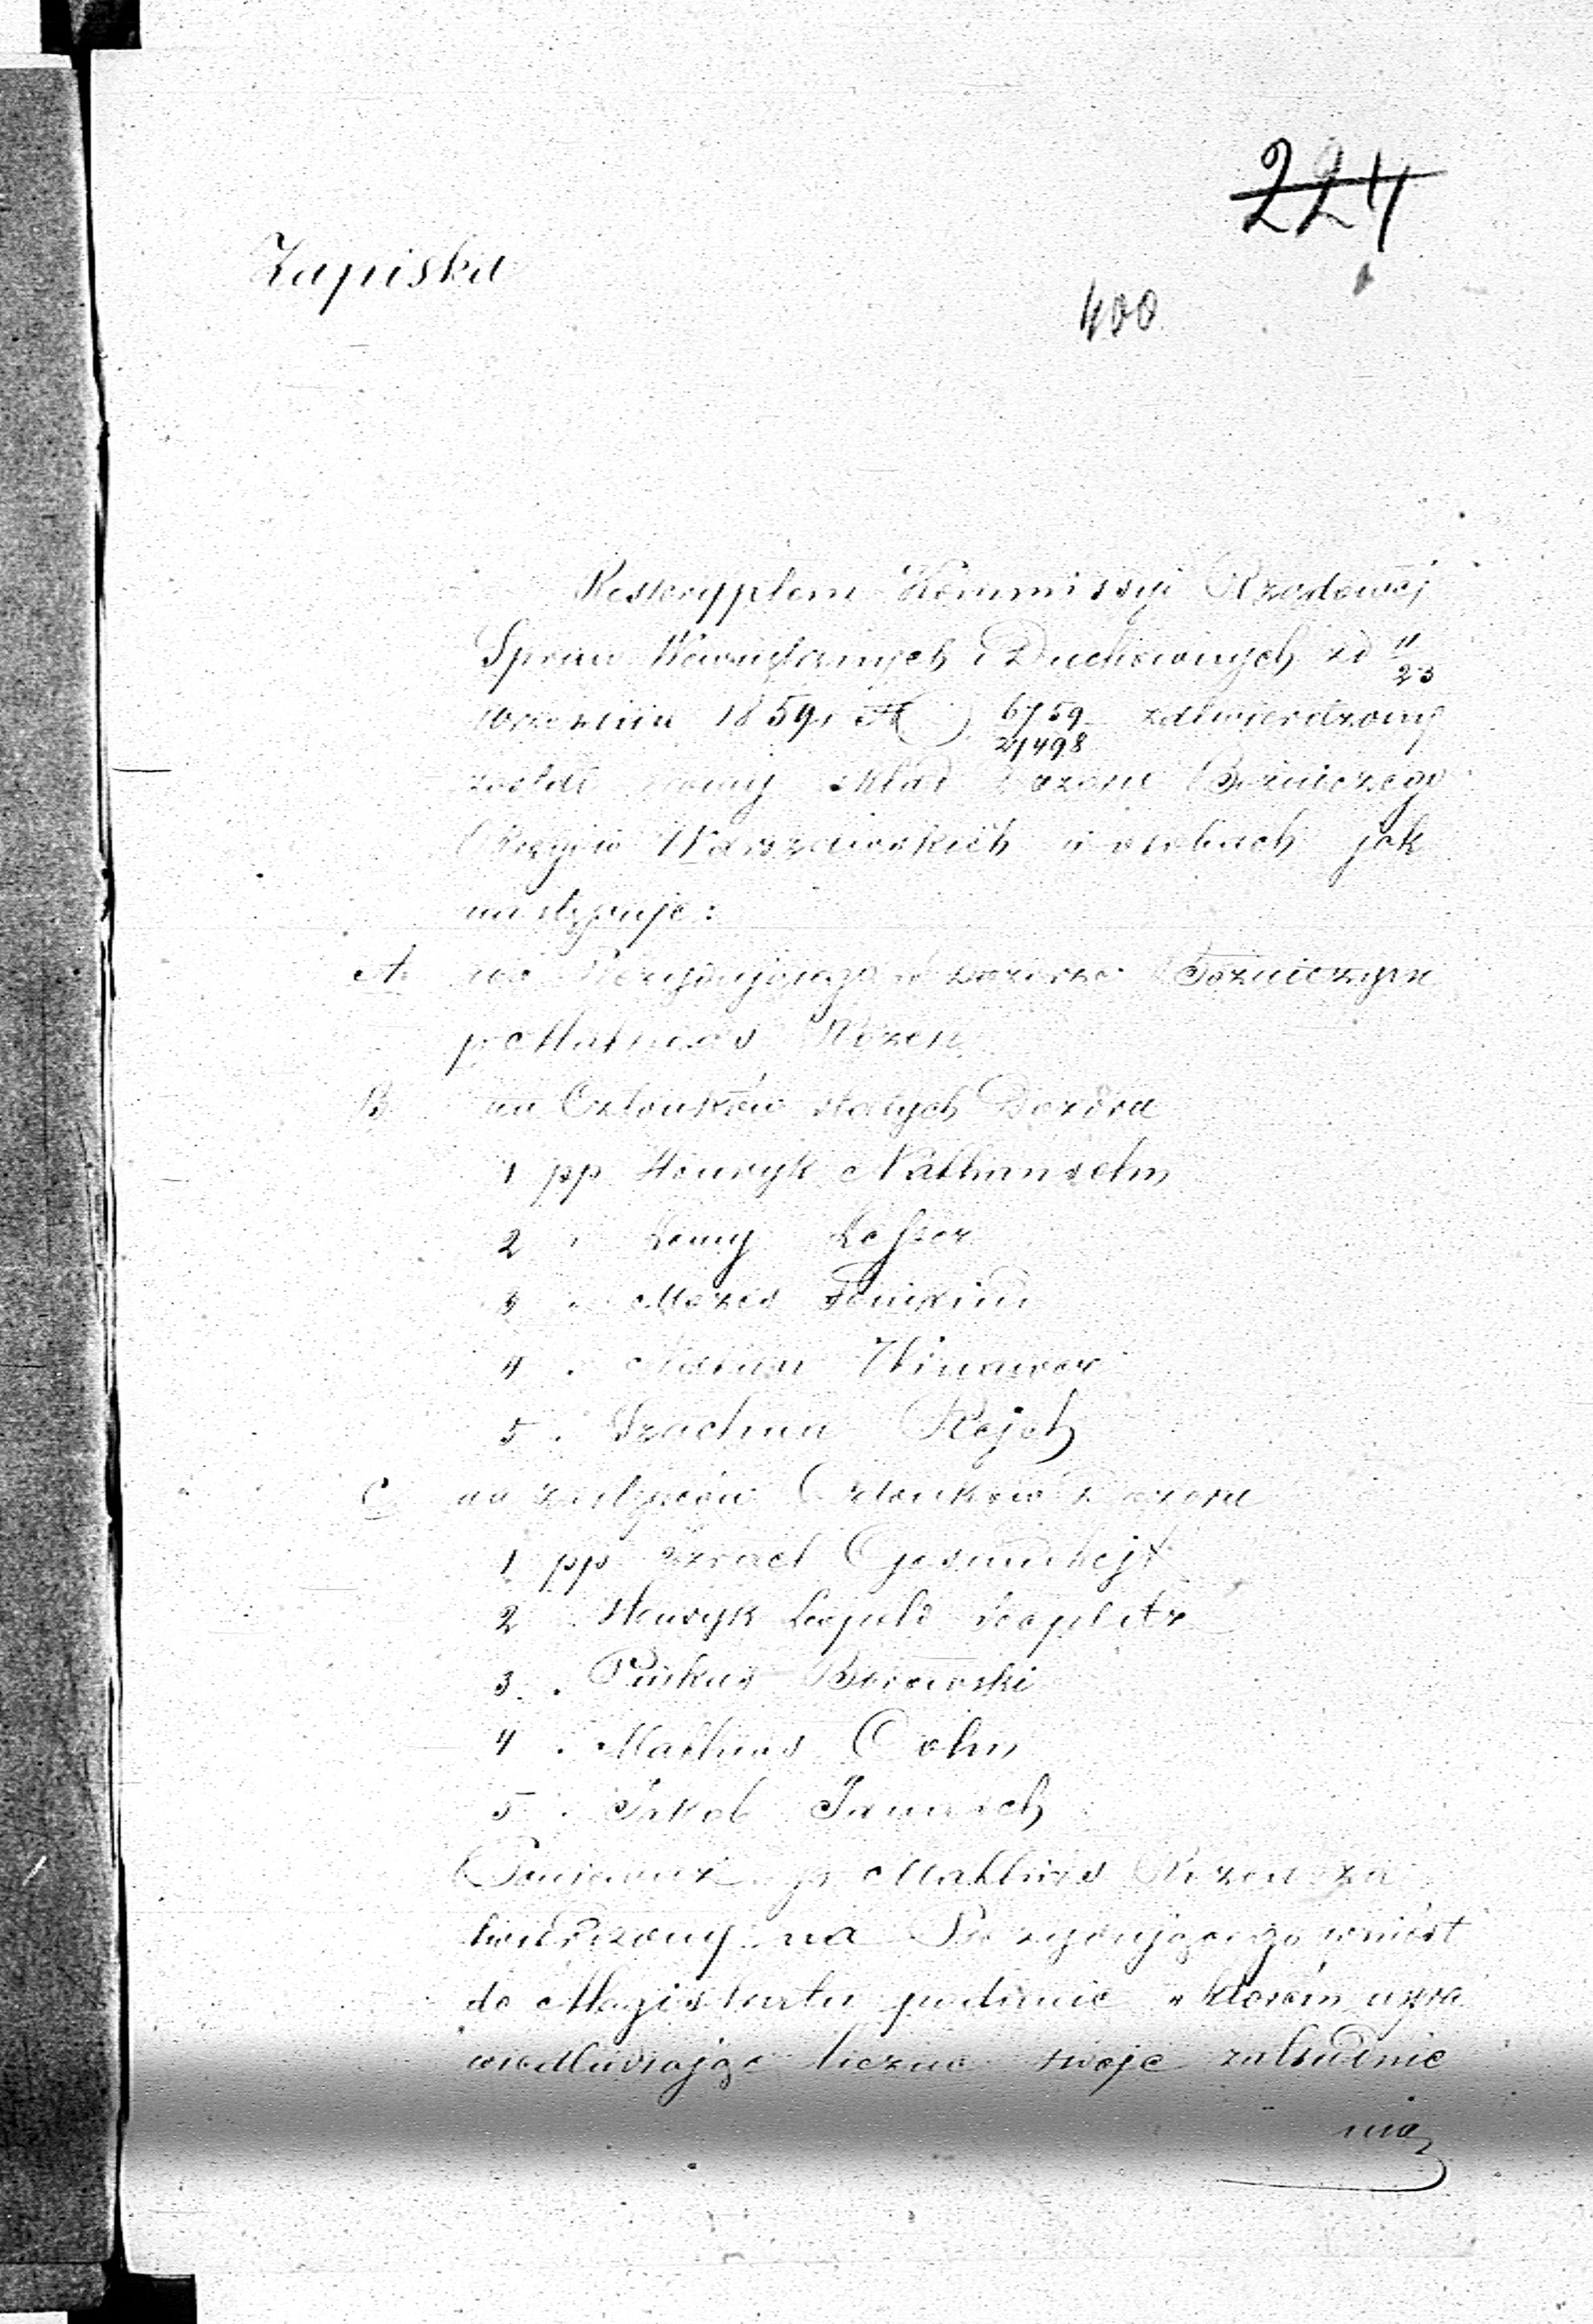 224
Zapiska
400
Reskryptem Kommissyi Rządowej
Spraw Wewnętrznych i Duchownych z d 11/23
Września 1859 r N 6759/21498 zatwierdzony
został nowy skład Dozoru Bożniczego
Okręgów Warszawskich w osobach jak
następuje:
A. na Prezydującego w Dozorze Bożniczym
p. Mathias Rozen
B. na Członków stałych Dozoru
1 pp Henryk Nathansohn
2 " Lewy Lesser
3 " Mozes Feinkind
4 " Adam Winawer
5 " Szachna Rejch
C. na zastępców Członków Dozoru
1 pp Izrael Gesundhejt
2 " Henryk Leopold Toeplitz
3 " Pinkus Borawski
4 " Mathias Cohn
5 " Jakob Janasch
Ponieważ p. Mathias Rozen za
twierdzony na Prezydującego wniósł
do Magistratu podanie w którém uspra
wiedliwiając liczne swoje zatrudnie
nia